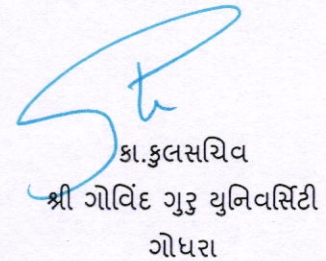 કા.કુલસચિવ
શ્રી ગોવિંદ ગુરુ યુનિવર્સિટી
ગોધરા